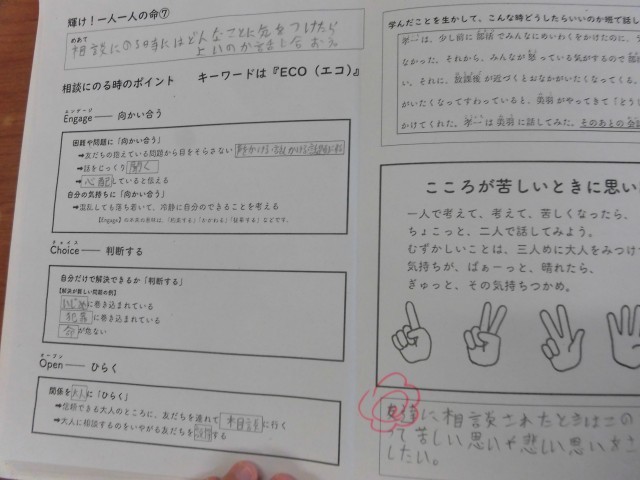 輝け！一人一人の命⑦
めあて
相談にのる時にはどんなことに気をつけたら
よいのか話し合おう
相談にのる時のポイント キーワードは『ECO（エコ）』
エンゲージ
Engage── 向かい合う
困難や問題に「向かい合う」
➡友だちの抱えている問題から目をそらさない
➡話をじっくり 聞く
➡心配していると伝える
自分の気持ちに「向かい合う」
➡混乱しても落ち着いて、冷静に自分のできることを考える
チョイス
Choice── 判断する
自分だけで解決できるか「判断する」
【解決が難しい問題の例】
いじめに巻き込まれている
犯罪に巻き込まれている
命が危ない
オープン
Open── ひらく
関係を大人に「ひらく」
➡信頼できる大人のところに、友だちを連れて 相談 に行く
➡大人に相談するのをいやがる友だちを説得する
学んだことを生かして、こんな時どうしたらいいのか班で話し
は、少し前に部活でみんなにめいわくをかけたのに、
なかった。それから、みんなが怒っている気がするので部
い、それに、放課後が近づくとおなかがいたくなってくる。
がいたくなってすわっていると、勇羽がやってきて「どう
かけてくれた。は勇羽に話してみた。そのあとの会話
こころが苦しいときに思い
一人で考えて、考えて、苦しくなったら、
ちょこっと、二人で話してみよう。
むずかしいことは、三人めに大人をみつけ
気持ちが、ぱぁーっと、晴れたら、
ぎゅっと、その気持ちつかめ。
友達に相談されたときはこの
って苦しい思いや悲しい思いを
したい。